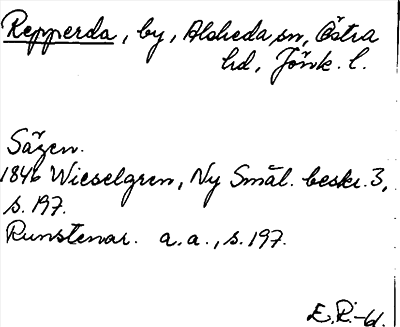 Repperda, by, Alsheda sn, Östra
hd, Jönk. l.
Sägen.
1846 Wieselgren, Ny Smål. beskr. 3,
s. 197.
Runstenar. a.a., s. 197.